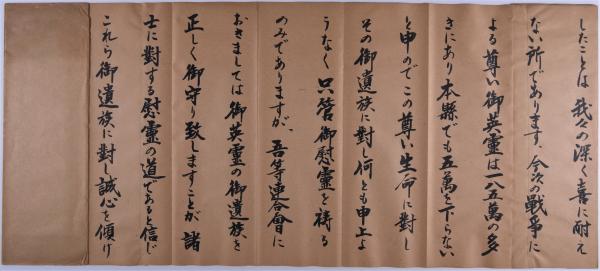 したことは我々の深く喜に耐え
ない所であります、今次の戰爭に
よる尊い御英霊は一八五萬の多
きにあり本縣でも五萬を下らない
と申のでこの尊い生命に對し
その御遺族に對し何とも申上よ
うなく只管御慰霊を祷る
のみでありますが、吾等連合會に
おきましては御英霊の御遺族を
正しく御守り致しますことが諸
士に對する慰霊の道であると信じ
これら御遺族に對し誠心を傾け